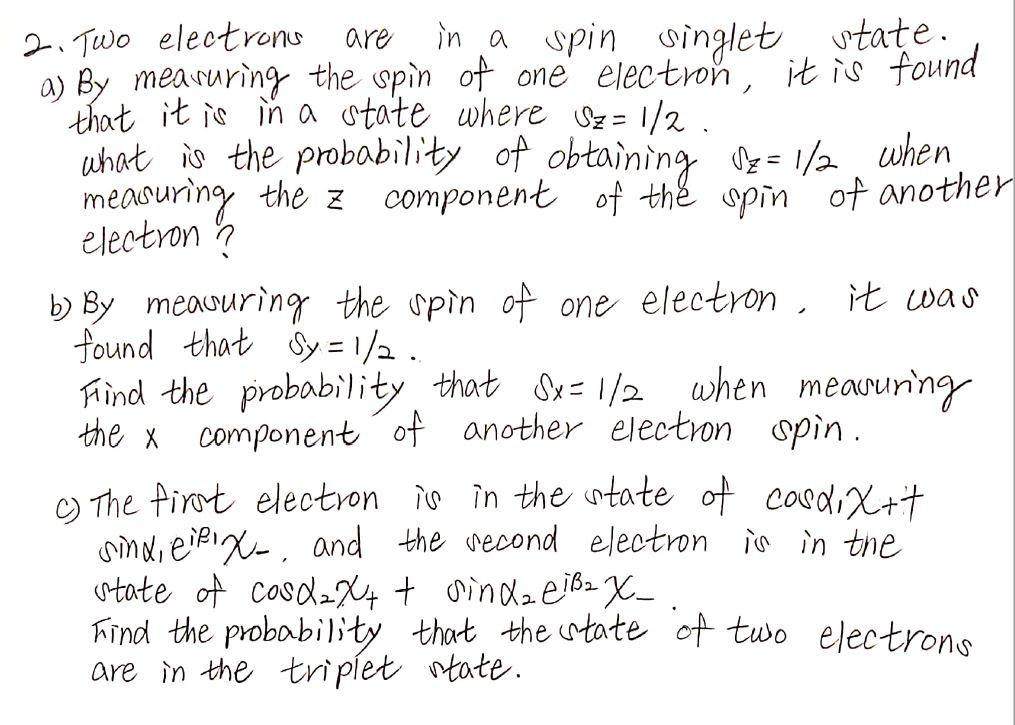 2. Two electrons are in a spin singlet state.
a) By measuring the spin of one electron, it is found
that it is in a state where Sz = 1/2.
what is the probability of obtaining Sz = 1/2 when
measuring the z component of the spin of another
electron?
b) By measuring the spin of one electron, it was
found that Sy = 1/2.
Find the probability that Sx = 1/2 when measuring
the x component of another electron spin.
c) The first electron is in the state of cosα₁χ₊+
sinα₁e^{iβ₁}χ₋, and the second electron is in the
state of cosα₂χ₊ + sinα₂e^{iβ₂}χ₋.
Find the probability that the state of two electrons
are in the triplet state.